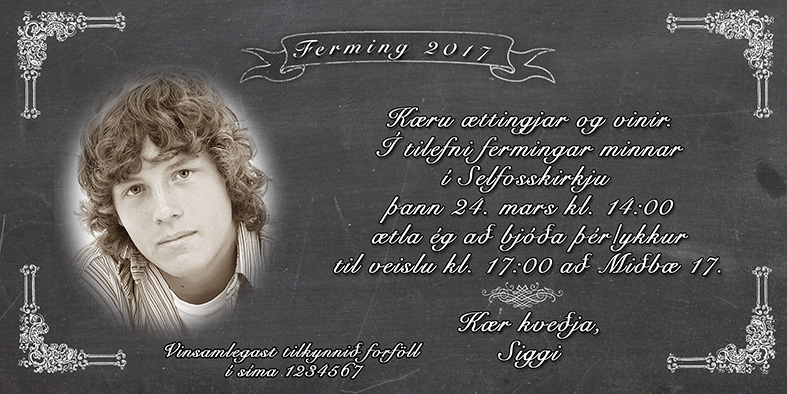 Ferming 2017
Kæru ættingjar og vinir.
Í tilefni fermingar minnar
í Selfosskirkju
þann 24. mars kl. 14:00
ætla ég að bjóða þér/ykkur
til veislu kl. 17:00 að Miðbæ 17.
Kær kveðja,
Siggi
Vinsamlegast tilkynnið forföll
í síma 1234567